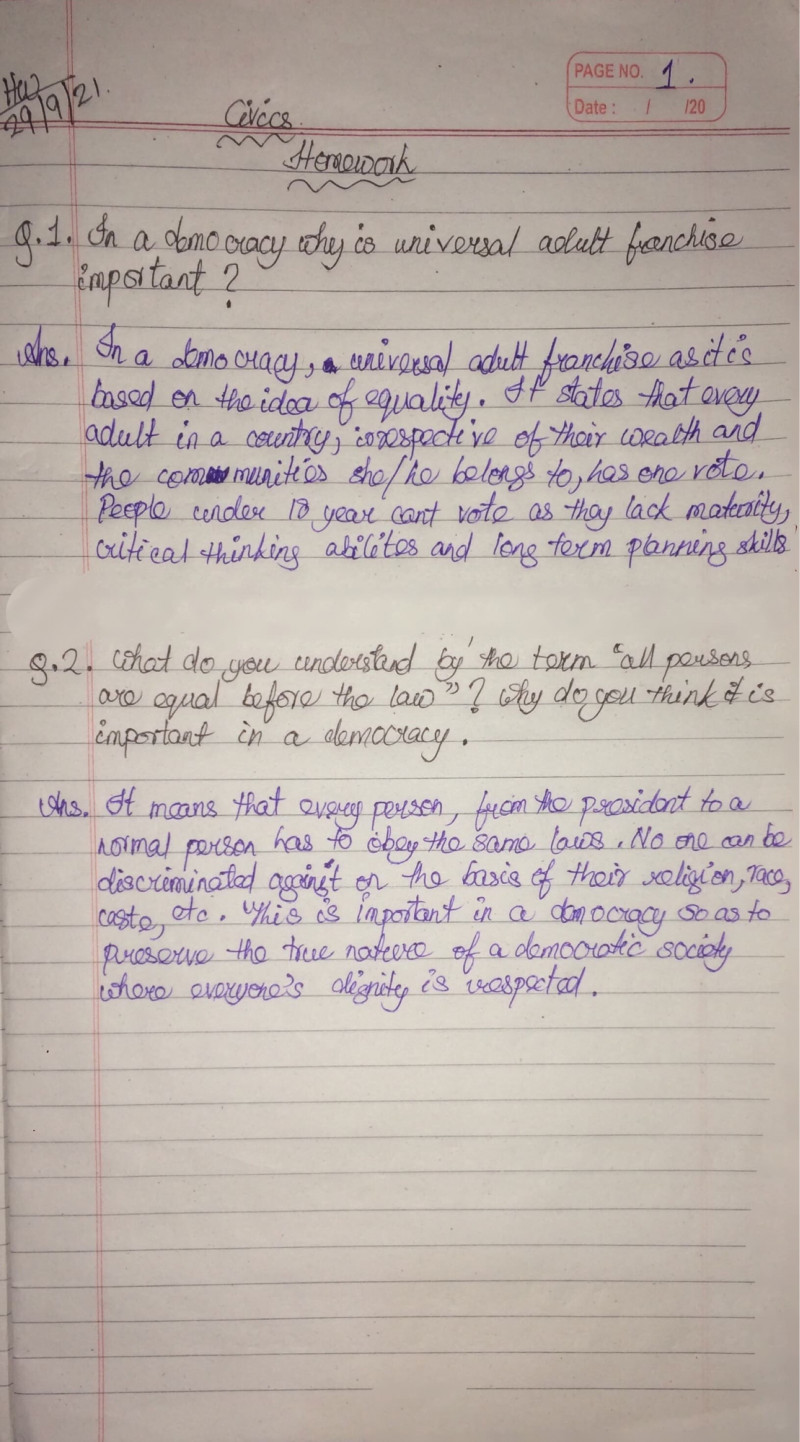 HW
29/9/21.
PAGE NO. 1.
Date : / /20
Civics
Homework
Q.1. In a democracy why is universal adult franchise
important ?
Ans. In a democracy, universal adult franchise as it is
based on the idea of equality. It states that every
adult in a country, irrespective of their wealth and
the communities she/he belongs to, has one vote.
People under 18 year cant vote as they lack maturity,
critical thinking abilites and long term planning skills
Q.2. What do you understand by the term "all persons
are equal before the law"? Why do you think it is
important in a democracy.
Ans. It means that every person, from the president to a
normal person has to obey the same laws. No one can be
discriminated against on the basis of their religion, race,
caste, etc. This is important in a democracy so as to
preserve the true nature of a democratic society
where everyone's dignity is respected.